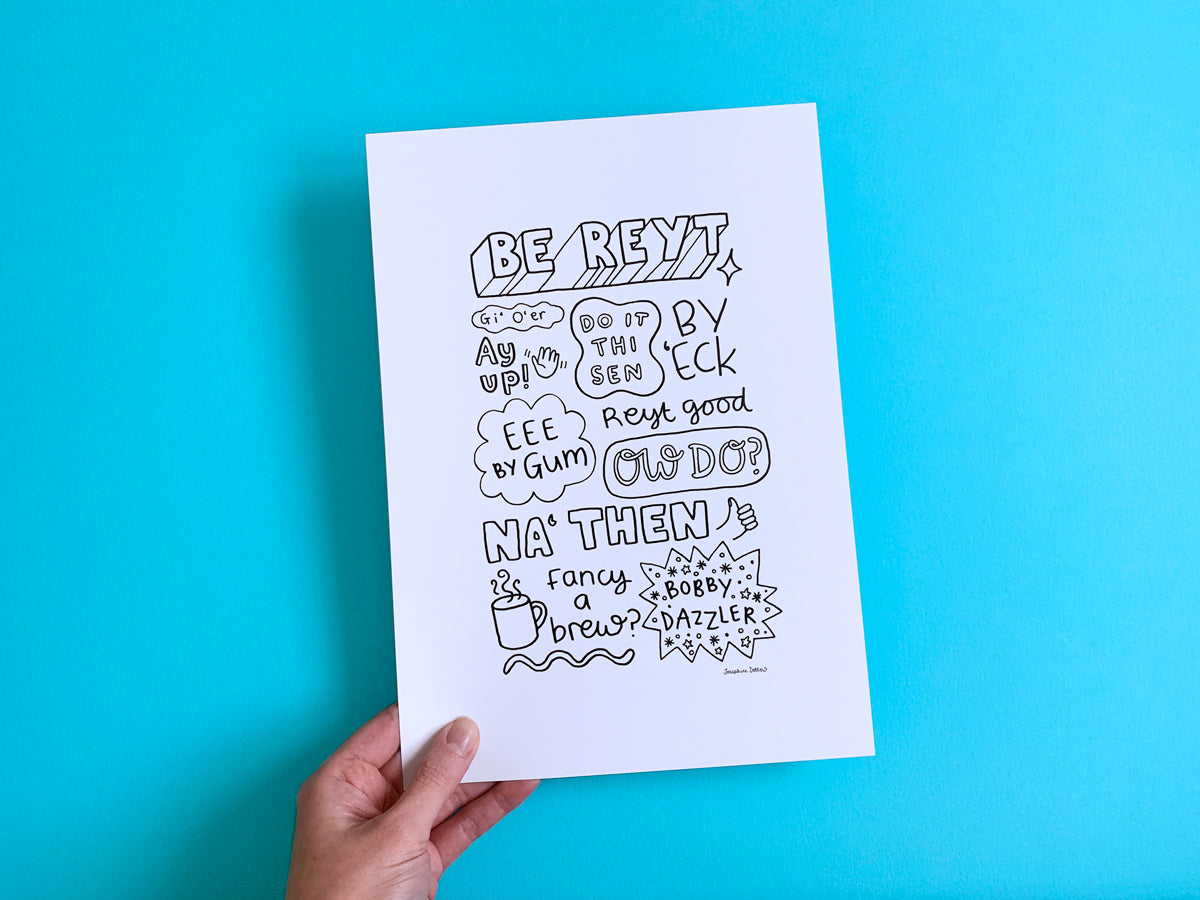 BE REYT
Gi' O'er
Ay
up!
DO IT
THI
SEN
BY
'ECK
EEE
BY GUM
Reyt good
OW DO?
NA' THEN
Fancy
a
brew?
BOBBY
DAZZLER
Josephine Dellow